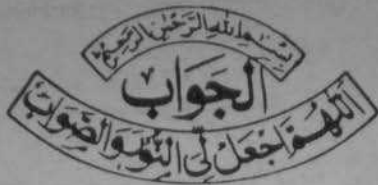 بِسْمِ اللهِ الرَّحْمٰنِ الرَّحِيْمِ
الجَوَاب
اَللّٰهُمَّ اجْعَلْ لِّی النُّوْرَ وَالصَّوَاب